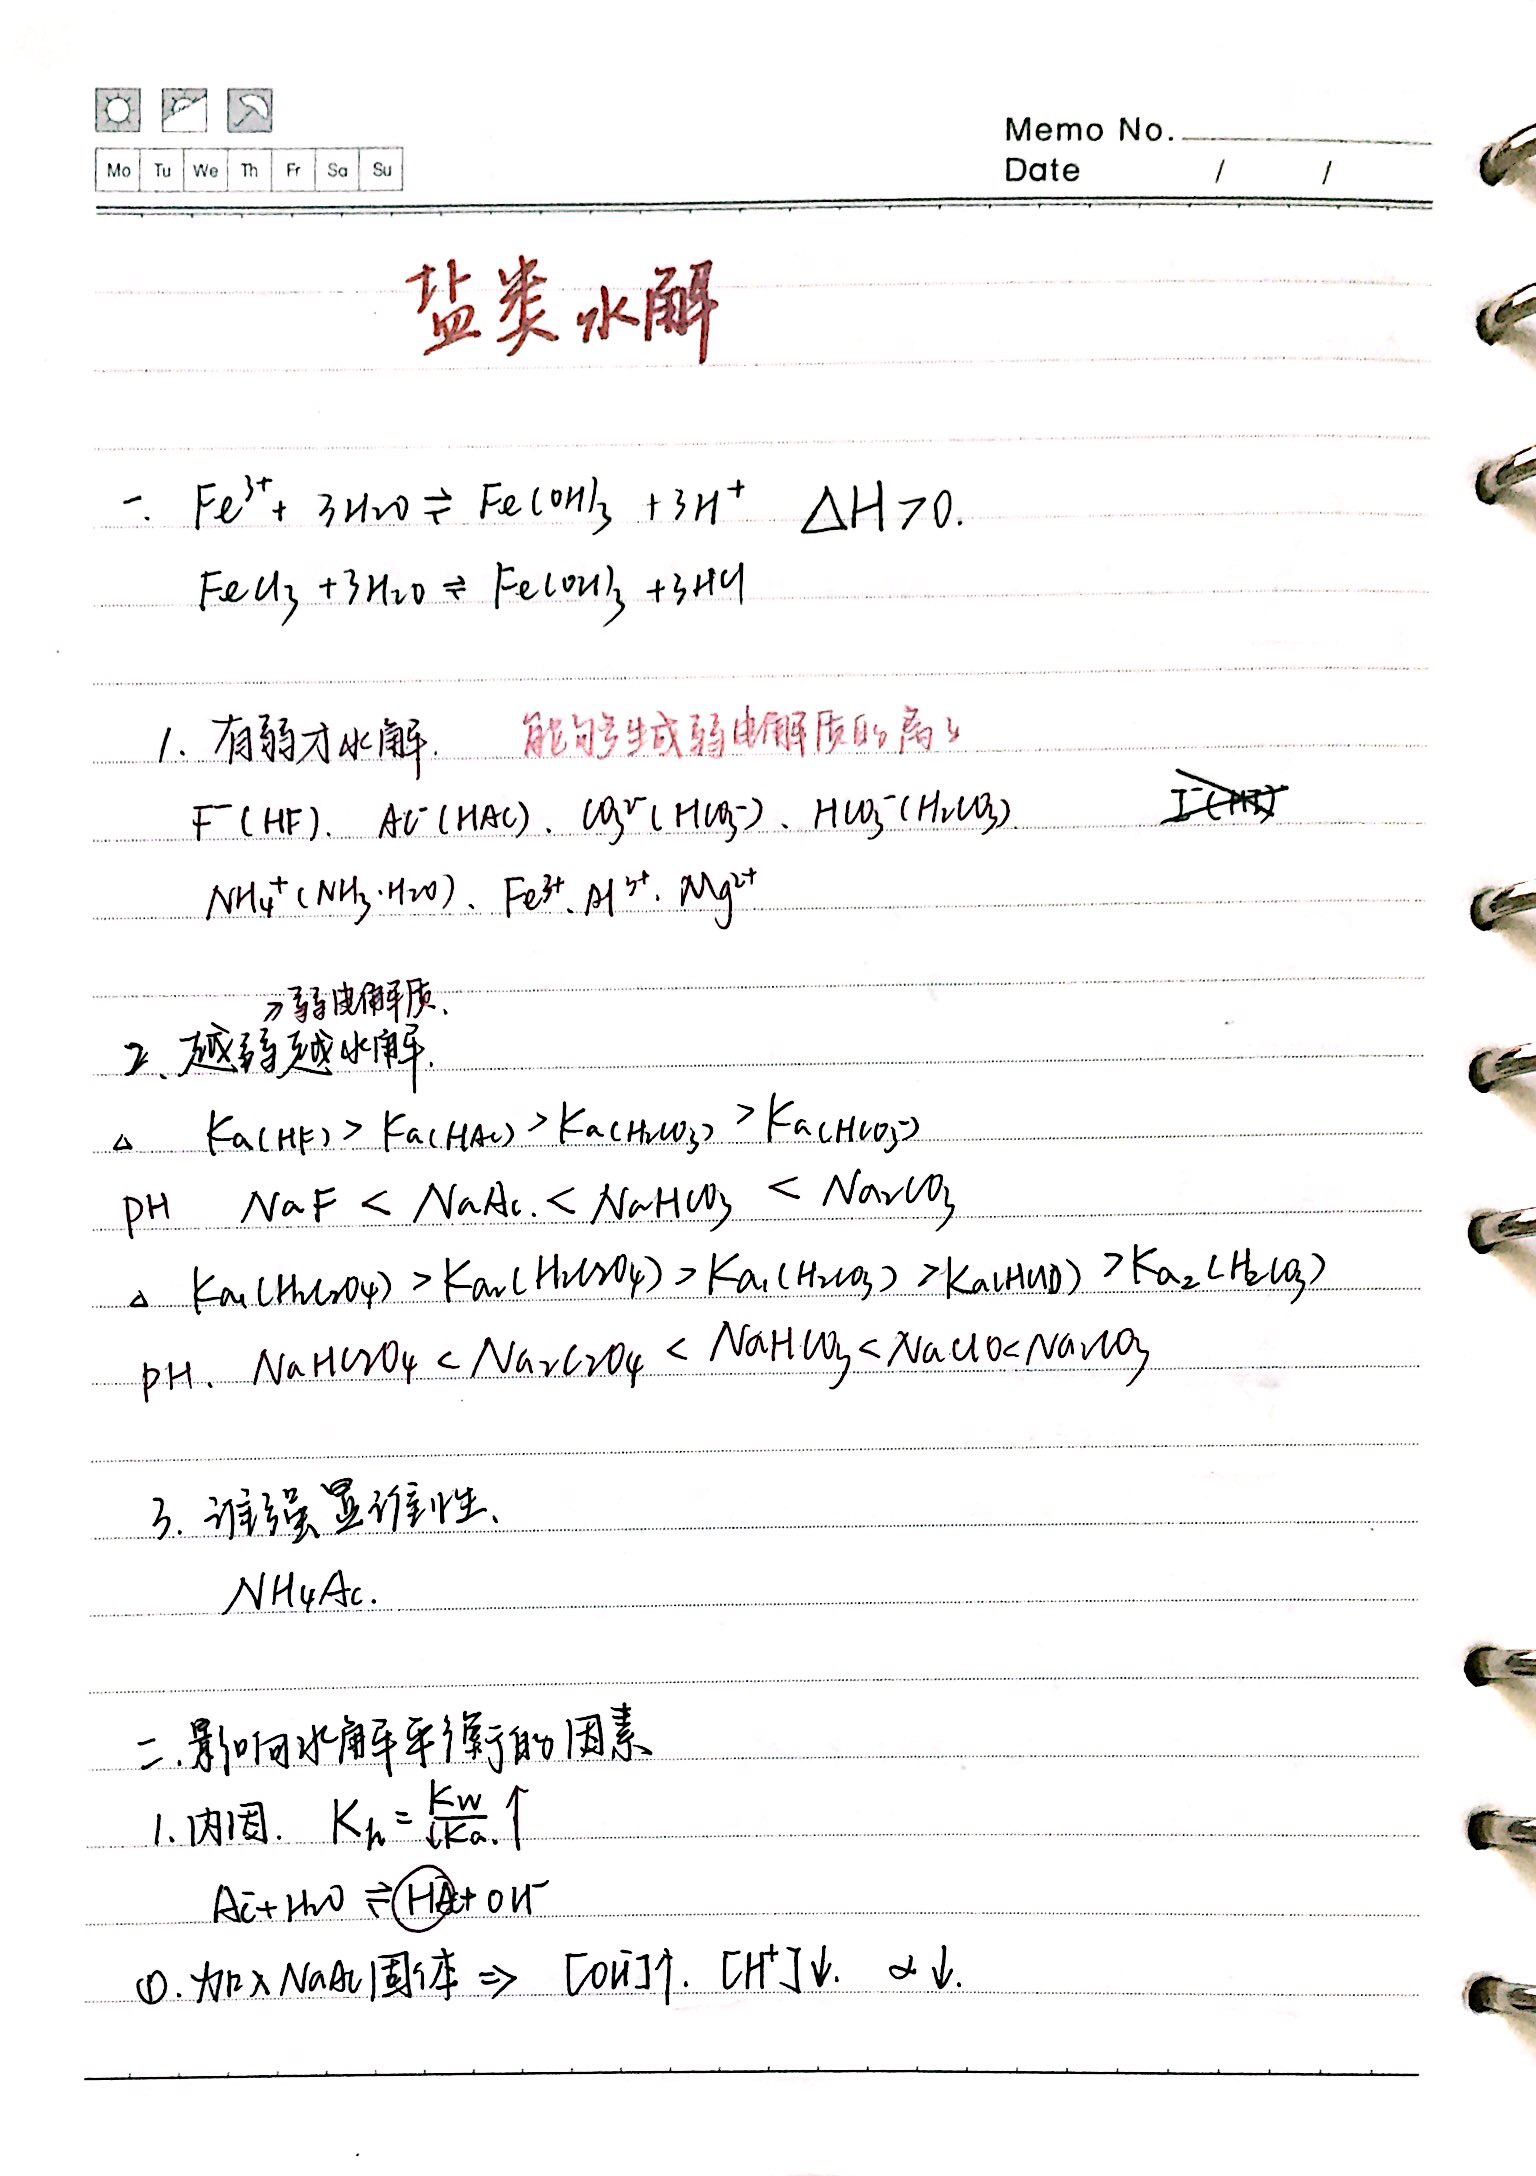 Mo Tu We Th Fr Sa Su
Memo No.
Date / /
盐类水解
一. Fe³⁺ + 3H₂O ⇌ Fe(OH)₃ + 3H⁺ △H>0.
FeCl₃ + 3H₂O ⇌ Fe(OH)₃ + 3HCl
1. 有弱才水解. 能够生成弱电解质的离子
F⁻(HF). Ac⁻(HAc). CO₃²⁻(HCO₃⁻)、HCO₃⁻(H₂CO₃).
NH₄⁺(NH₃·H₂O)、Fe³⁺. Al³⁺. Mg²⁺
→弱电解质.
2. 越弱越水解.
△ Ka(HF) > Ka(HAc) > Ka(H₂CO₃) > Ka(HCO₃⁻)
PH NaF < NaAc. < NaHCO₃ < Na₂CO₃
△ Ka₁(H₂C₂O₄) > Ka₂(H₂C₂O₄) > Ka₁(H₂CO₃) > Ka(HClO) > Ka₂(H₂CO₃)
PH. NaHC₂O₄ < Na₂C₂O₄ < NaHCO₃ < NaClO < Na₂CO₃
3. 谁强显谁性.
NH₄Ac.
二. 影响水解平衡的因素
1. 内因. Kh = Kw/↓Ka. ↑
Ac⁻ + H₂O ⇌ HAc + OH⁻
①. 加入NaAc固体 ⇒ [OH⁻]↑. [H⁺]↓. α↓.